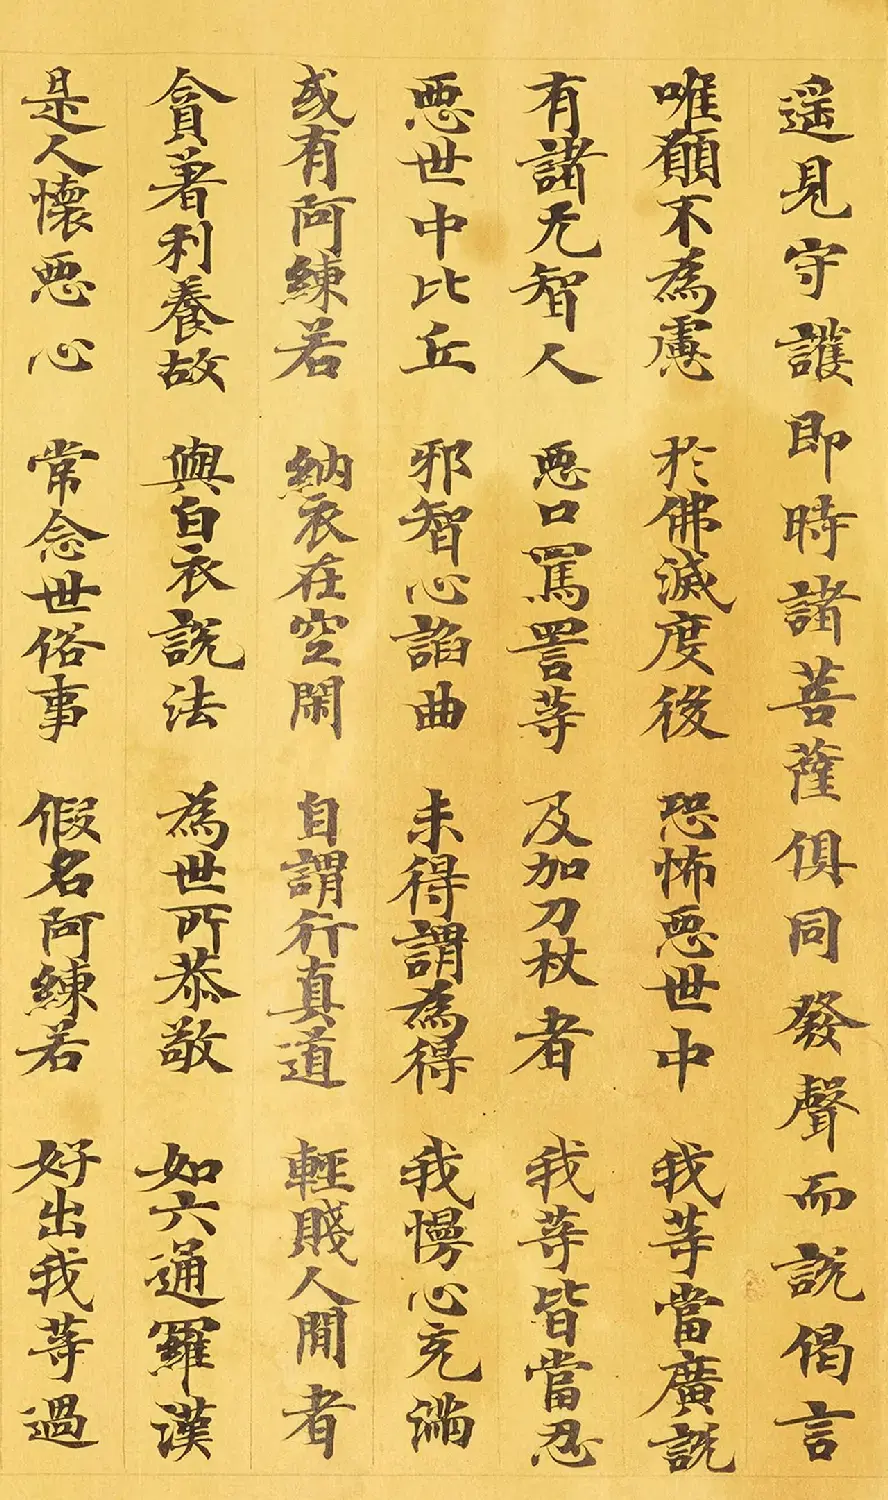 遥見守護即時諸菩薩俱同發聲而説偈言
唯願不為慮 於佛滅度後 恐怖惡世中 我等當廣説
有諸无智人 惡口罵詈等 及加刀杖者 我等皆當忍
惡世中比丘 邪智心諂曲 未得謂為得 我慢心充滿
或有阿練若 納衣在空閑 自謂行真道 輕賤人間者
貪著利養故 與白衣説法 為世所恭敬 如六通羅漢
是人懷惡心 常念世俗事 假名阿練若 好出我等過